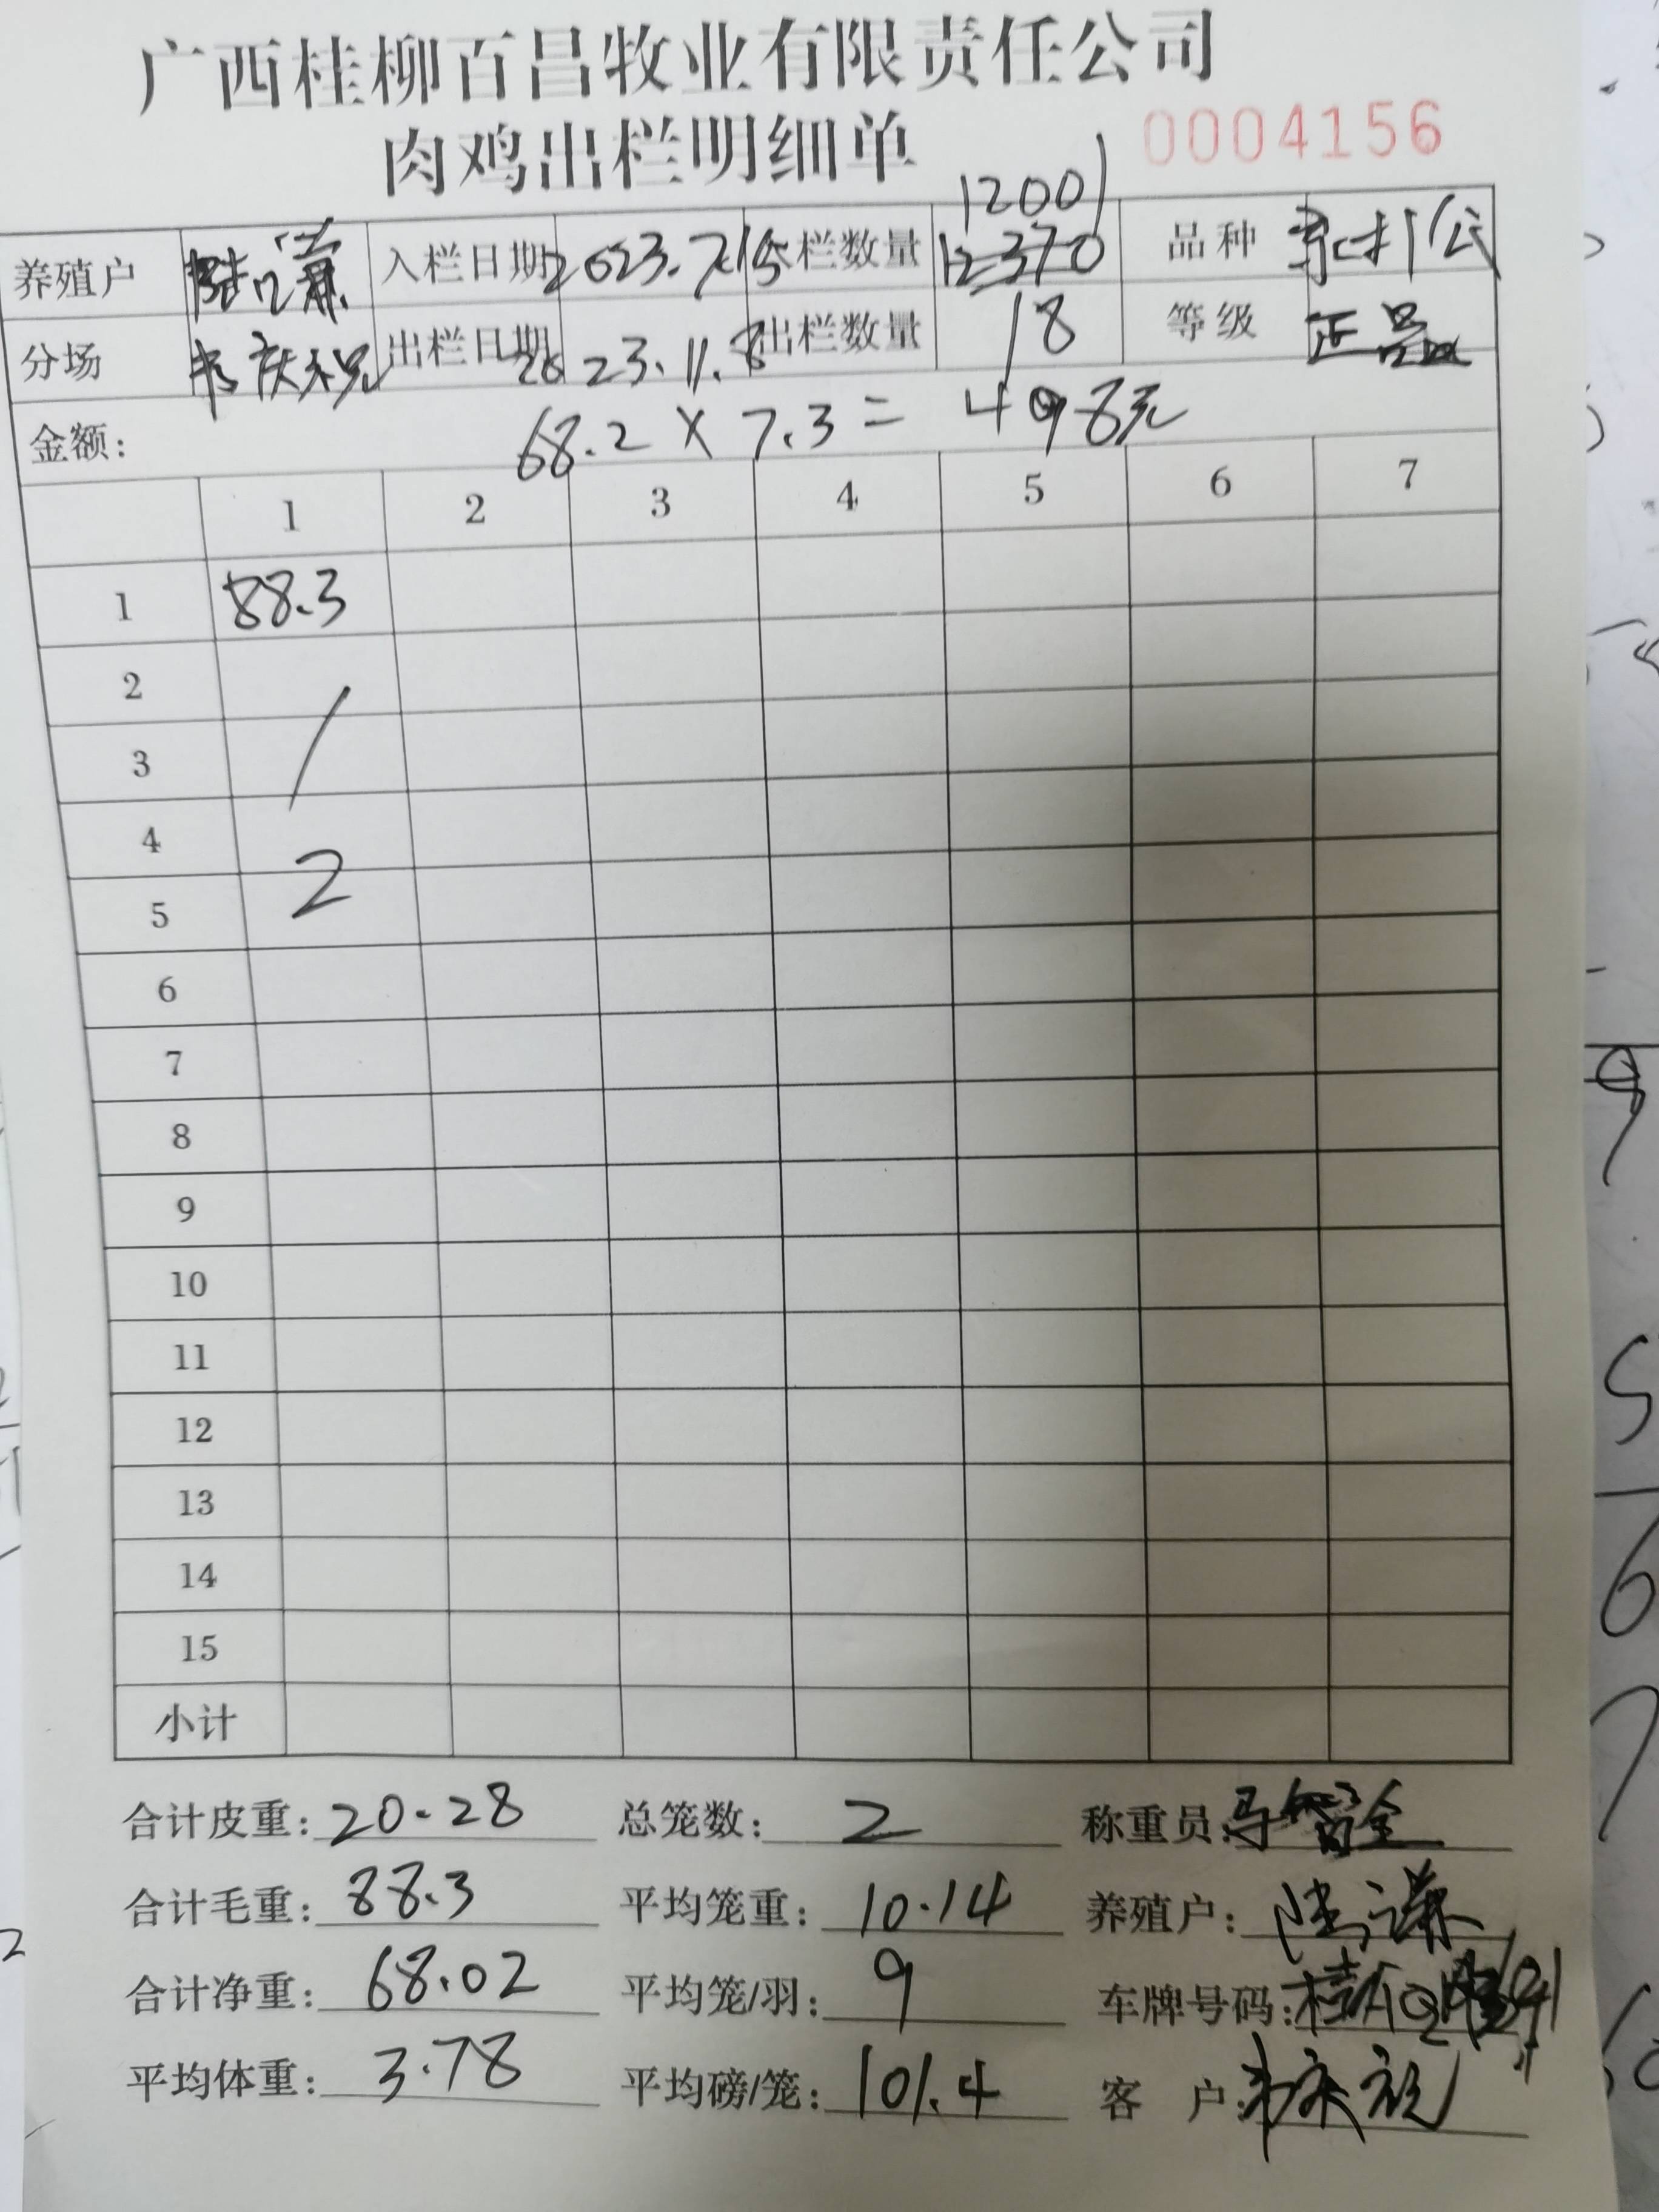 广西桂柳百昌牧业有限责任公司
肉鸡出栏明细单 0004156
12001
养殖户 入栏日期 2023.7.15 入栏数量 12370 品种
分场 出栏日期 2023.11.8 出栏数量 18 等级 正品
金额: 68.2 × 7.3 = 498元
1 2 3 4 5 6 7
1 88.3
2
3
4
5 2
6
7
8
9
10
11
12
13
14
15
小计
合计皮重: 20.28 总笼数: 2 称重员:
合计毛重: 88.3 平均笼重: 10.14 养殖户: 陆谦
合计净重: 68.02 平均笼/羽: 9 车牌号码:
平均体重: 3.78 平均磅/笼: 101.4 客 户: